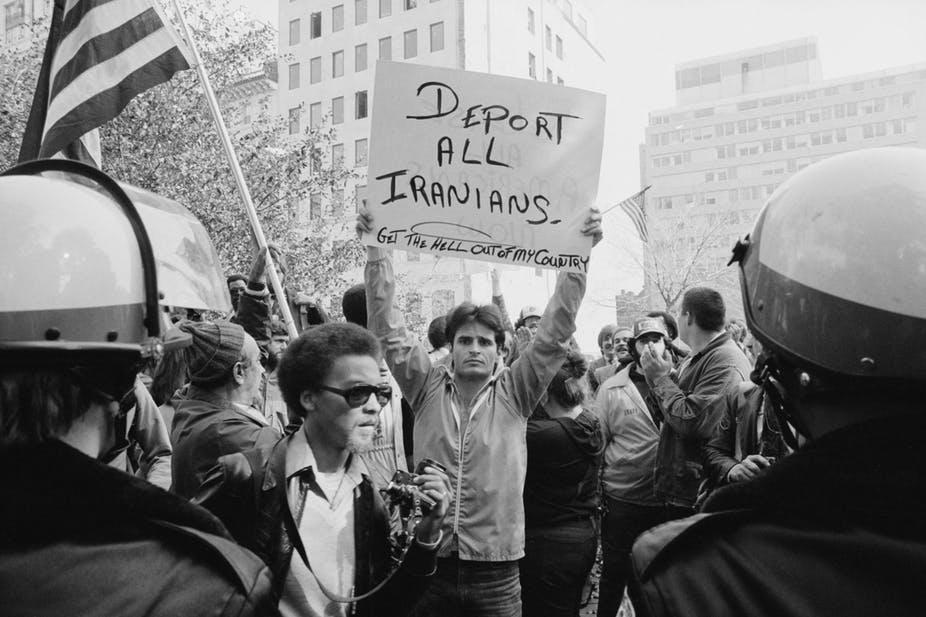 DEPORT
ALL
IRANIANS.
GET THE HELL OUT OF MY COUNTRY